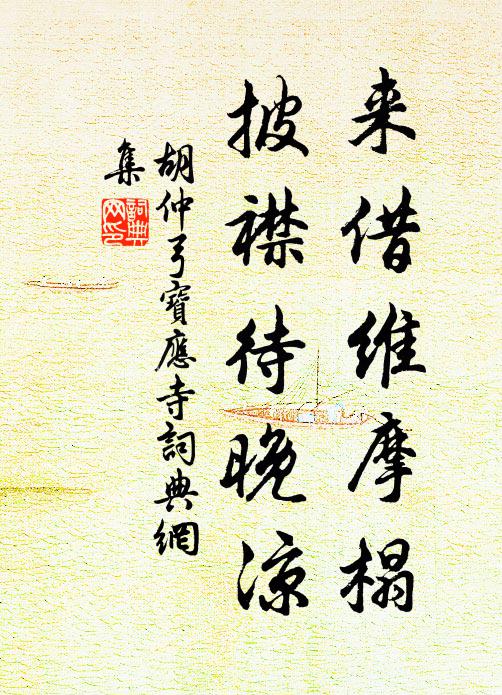 来借维摩榻
披襟待晚凉
胡仲弓寶應寺詞典網
集
詞典
网印